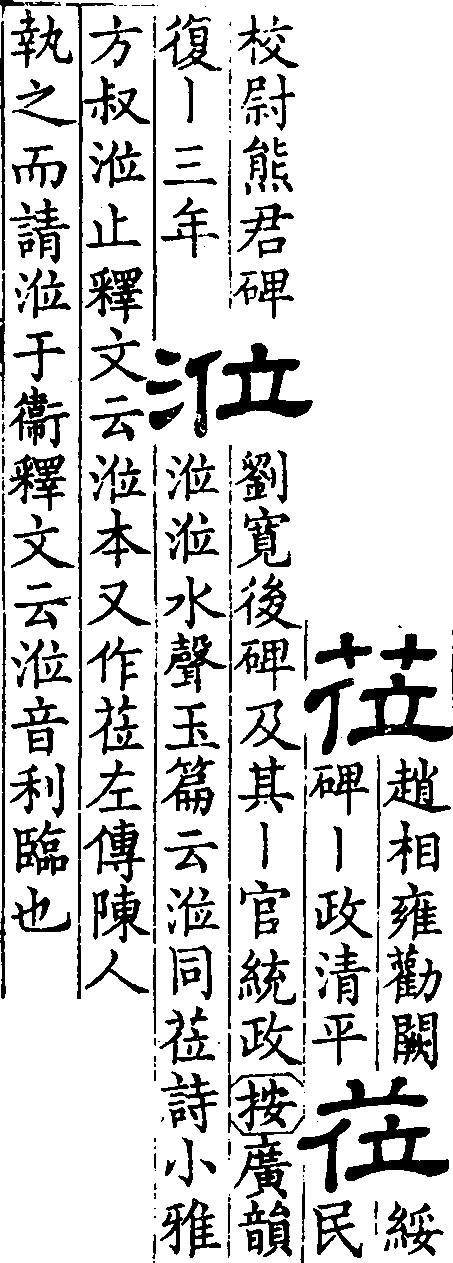 莅
趙相雍勸闕
碑丨政清平
莅
綏
民
校尉熊君碑
復丨三年
涖
劉寬後碑及其丨官統政按廣韻
涖涖水聲玉篇云涖同莅詩小雅
方叔涖止釋文云涖本又作莅左傳陳人
執之而請涖于衞釋文云涖音利臨也